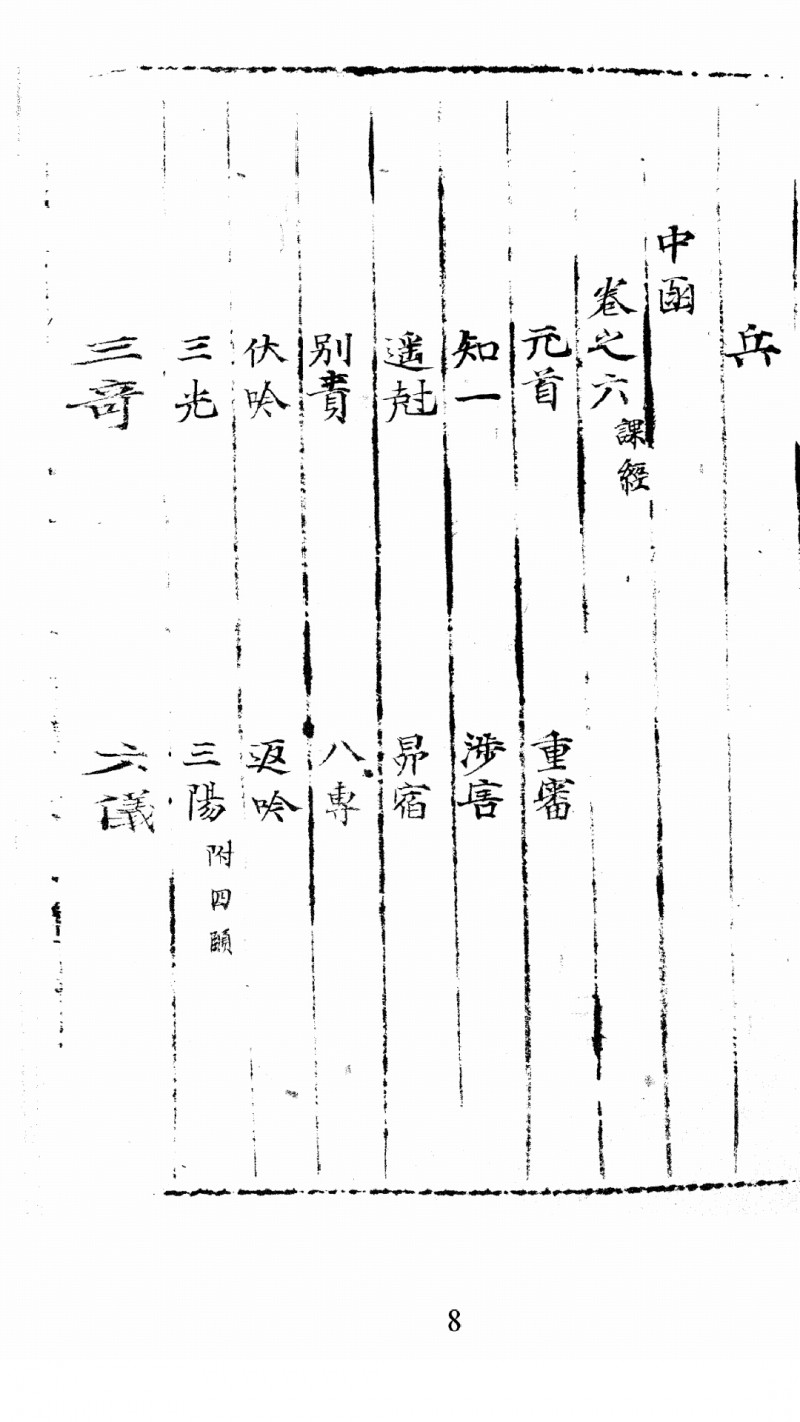 兵
中函
卷之六 課經
元首 重審
知一 涉害
遥尅 昴宿
别責 八專
伏吟 返吟
三光 三陽 附四頤
三奇 六儀
8